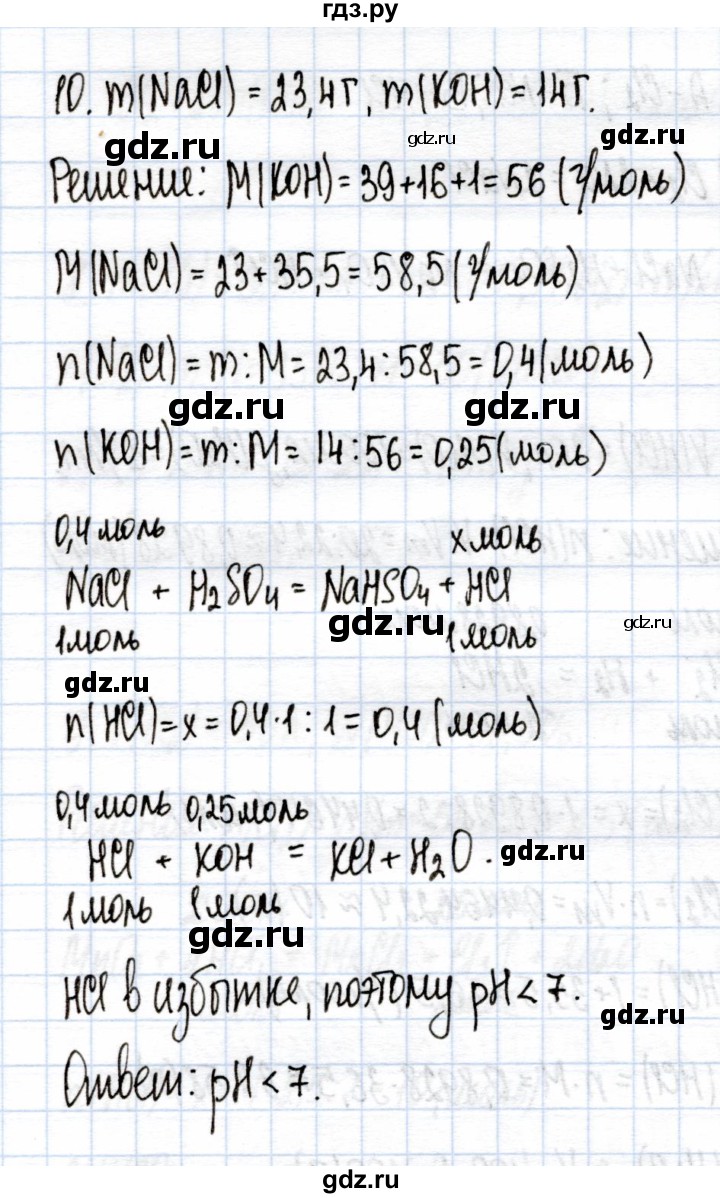 гдз.ру
10. m(NaCl) = 23,4г, m(KOH) = 14г.
gdz.ru gdz.ru gdz.ru
Решение: M(KOH) = 39+16+1 = 56 (г/моль)
M(NaCl) = 23 + 35,5 = 58,5 (г/моль)
n(NaCl) = m : M = 23,4 : 58,5 = 0,4 (моль)
gdz.ru gdz.ru
n(KOH) = m : M = 14 : 56 = 0,25 (моль)
0,4 моль x моль
NaCl + H2SO4 = NaHSO4 + HCl
gdz.ru gdz.ru
1 моль 1 моль
gdz.ru
n(HCl) = x = 0,4·1 : 1 = 0,4 (моль)
0,4 моль 0,25 моль
HCl + KOH = KCl + H2O.
gdz.ru
1 моль 1 моль
gdz.ru
HCl в избытке, поэтому pH < 7.
gdz.ru
Ответ: pH < 7.
gdz.ru
gdz.ru